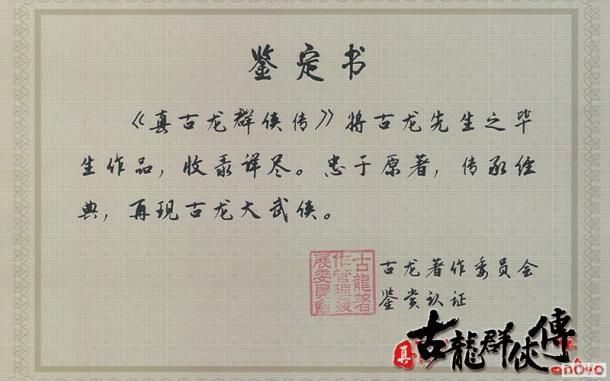 鉴定书
《真古龙群侠传》将古龙先生之毕
生作品，收录详尽。忠于原著，传承经
典，再现古龙大武侠。
古龍著
作管理發
展委員會
古龙著作委员会
鉴赏认证
真
古龍群俠傳